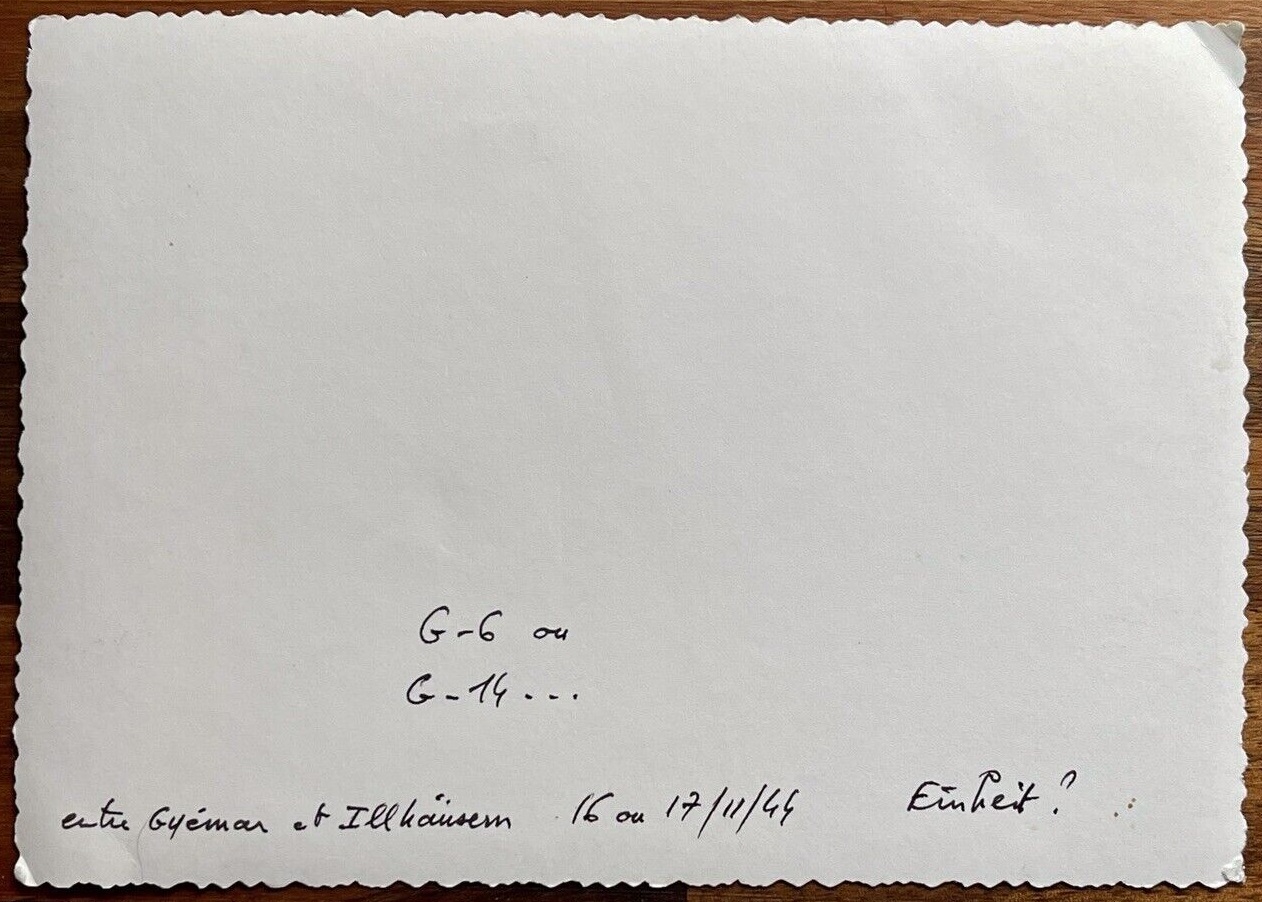 G-6 ou
G-14...
entre Gyémar et Illhäusern 16 ou 17/11/44 Einheit?